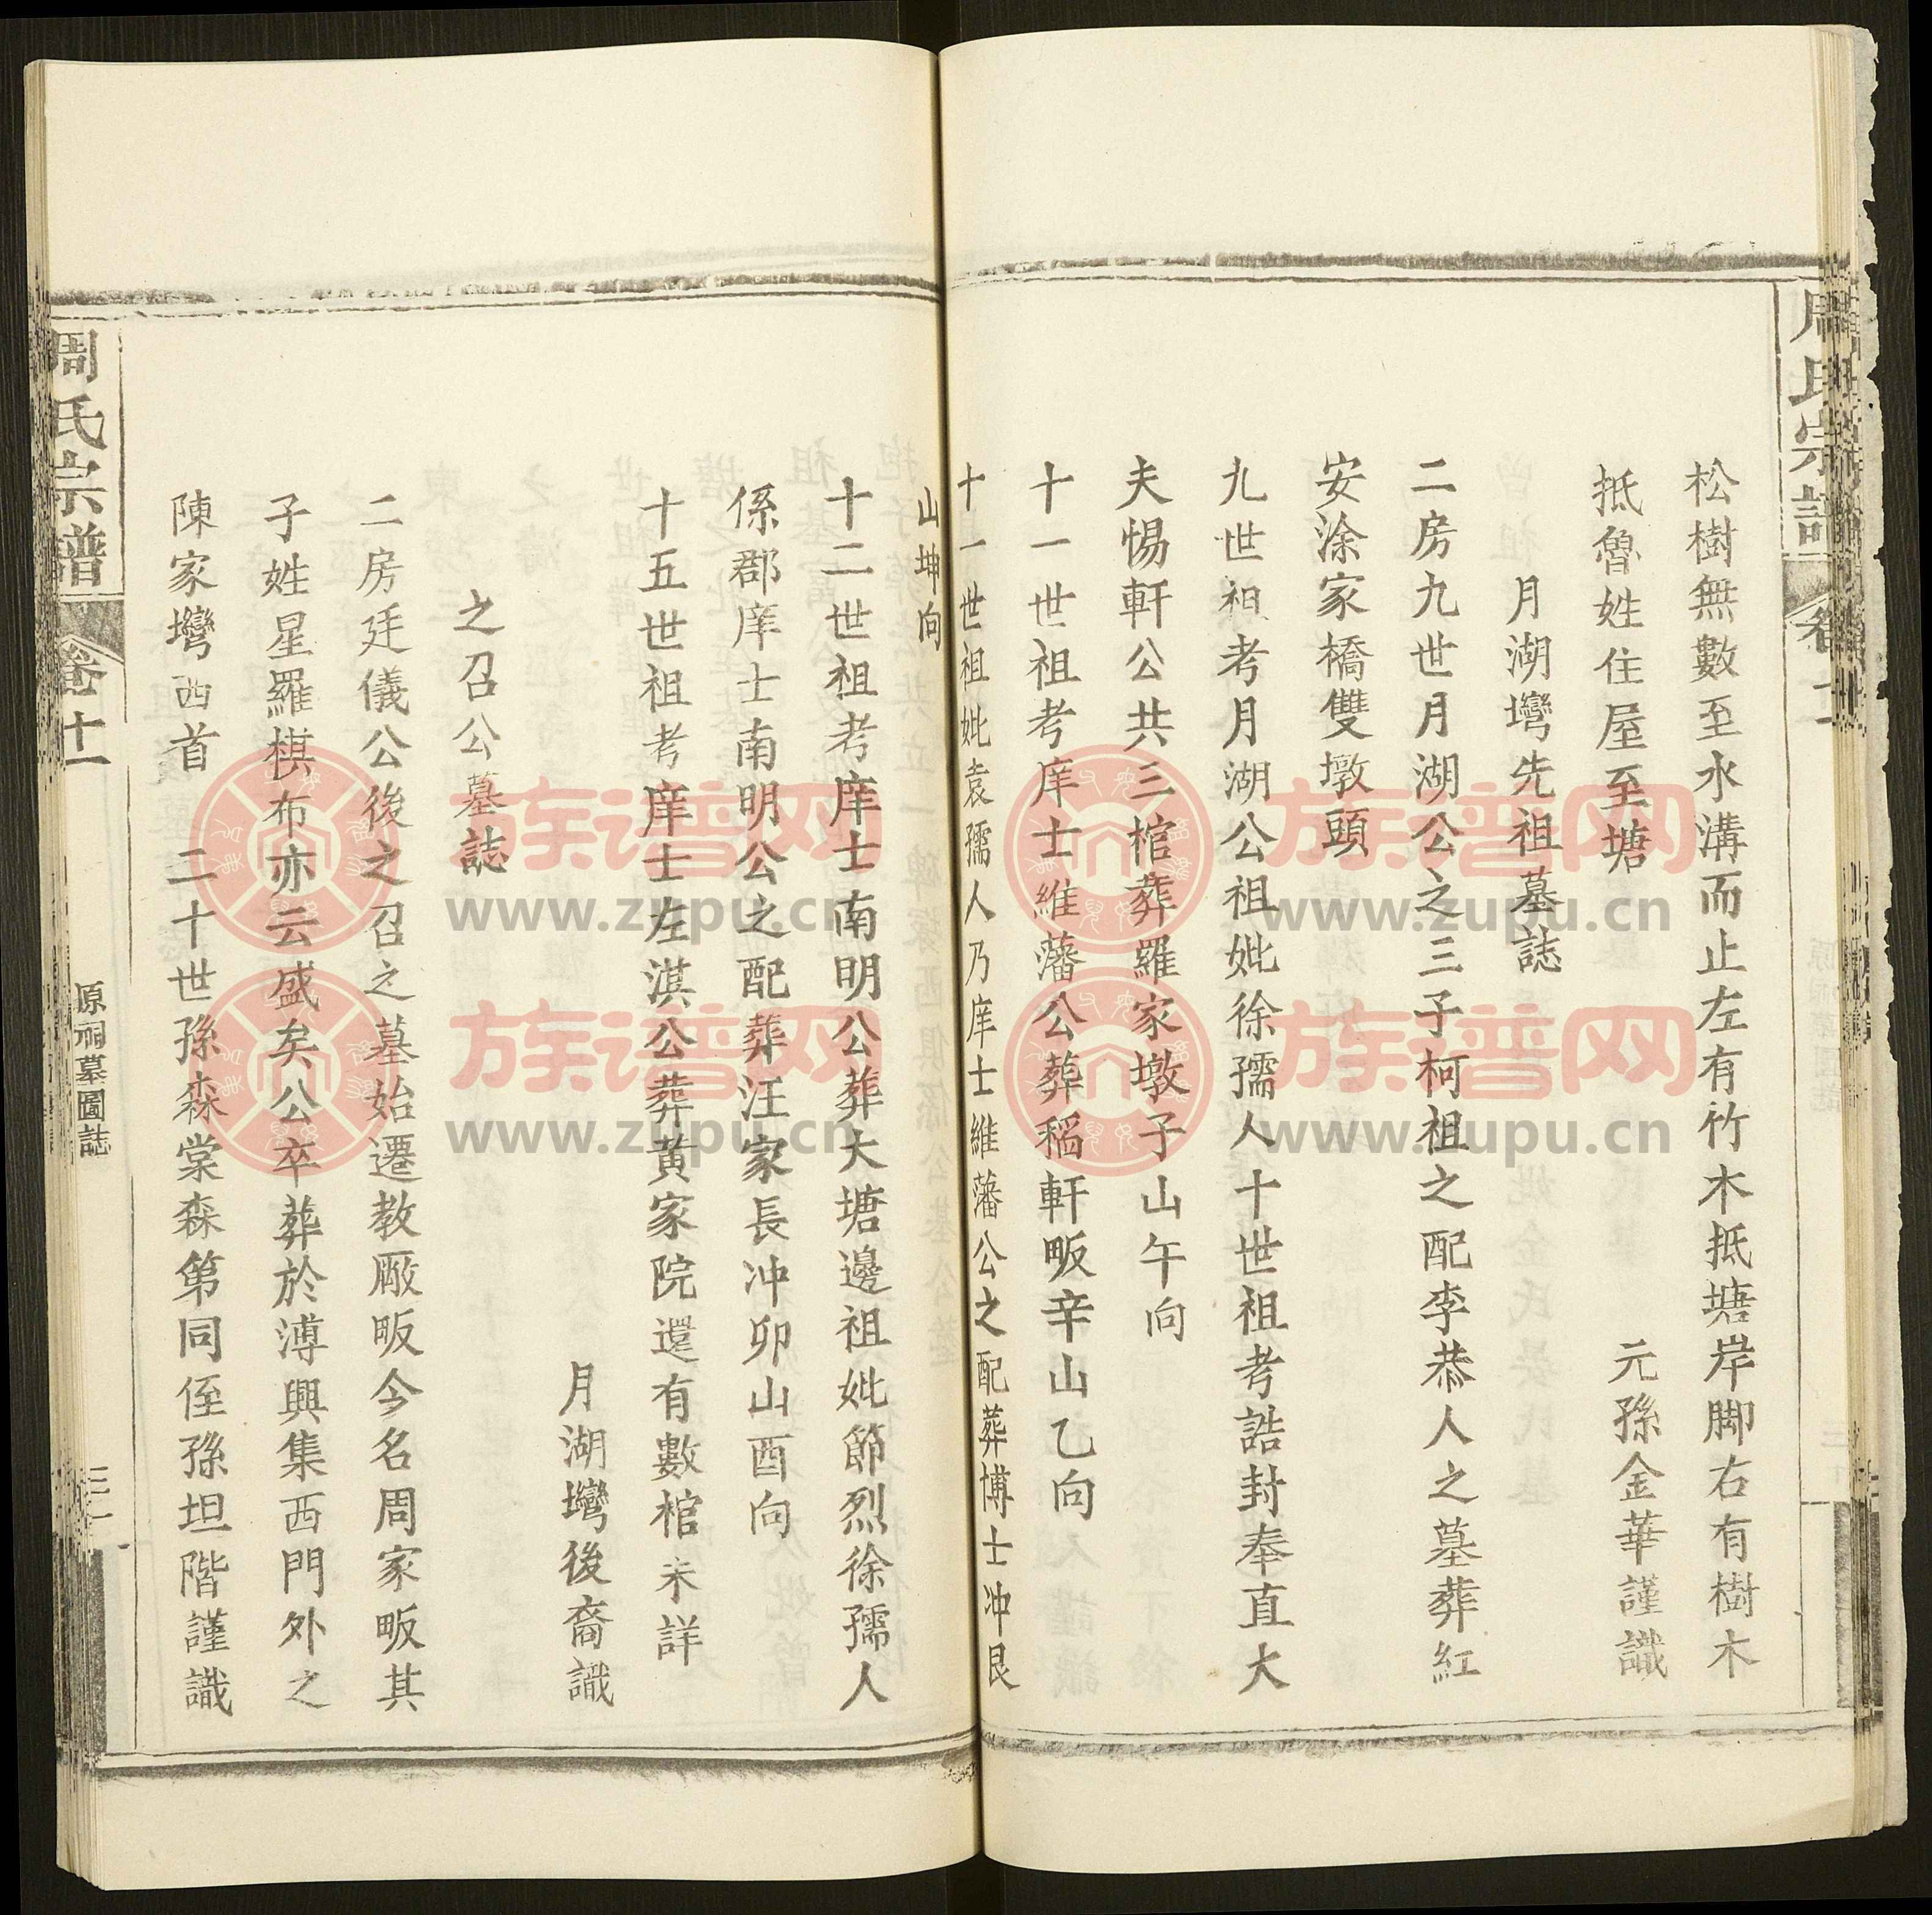 周氏宗譜
松樹無數至水溝而止左有竹木抵塘岸脚右有樹木
抵魯姓住屋至塘　元孫金華謹識
月湖灣先祖墓誌
二房九世月湖公之三子柯祖之配李恭人之墓葬紅
安涂家橋雙墩頭
九世祖考月湖公祖妣徐孺人十世祖考誥封奉直大
夫惕軒公共三棺葬羅家墩子山午向
十一世祖考庠士維藩公葬稻軒畈辛山乙向
十一世祖妣袁孺人乃庠士維藩公之配葬博士冲艮
山坤向
十二世祖考庠士南明公葬大塘邊祖妣節烈徐孺人
係郡庠士南明公之配葬汪家長冲卯山酉向
十五世祖考庠士左淇公葬黃家院還有數棺未詳
月湖灣後裔識
之召公墓誌
二房廷儀公後之召之墓始遷教廠畈今名周家畈其
子姓星羅棋布亦云盛矣公卒葬於溥興集西門外之
陳家灣西首　二十世孫森棠森第同侄孫坦階謹識
周氏宗譜
卷十一
原祠墓圖誌
三十一
族谱网
www.zupu.cn
族谱网
www.zupu.cn
族谱网
www.zupu.cn
族谱网
www.zupu.cn